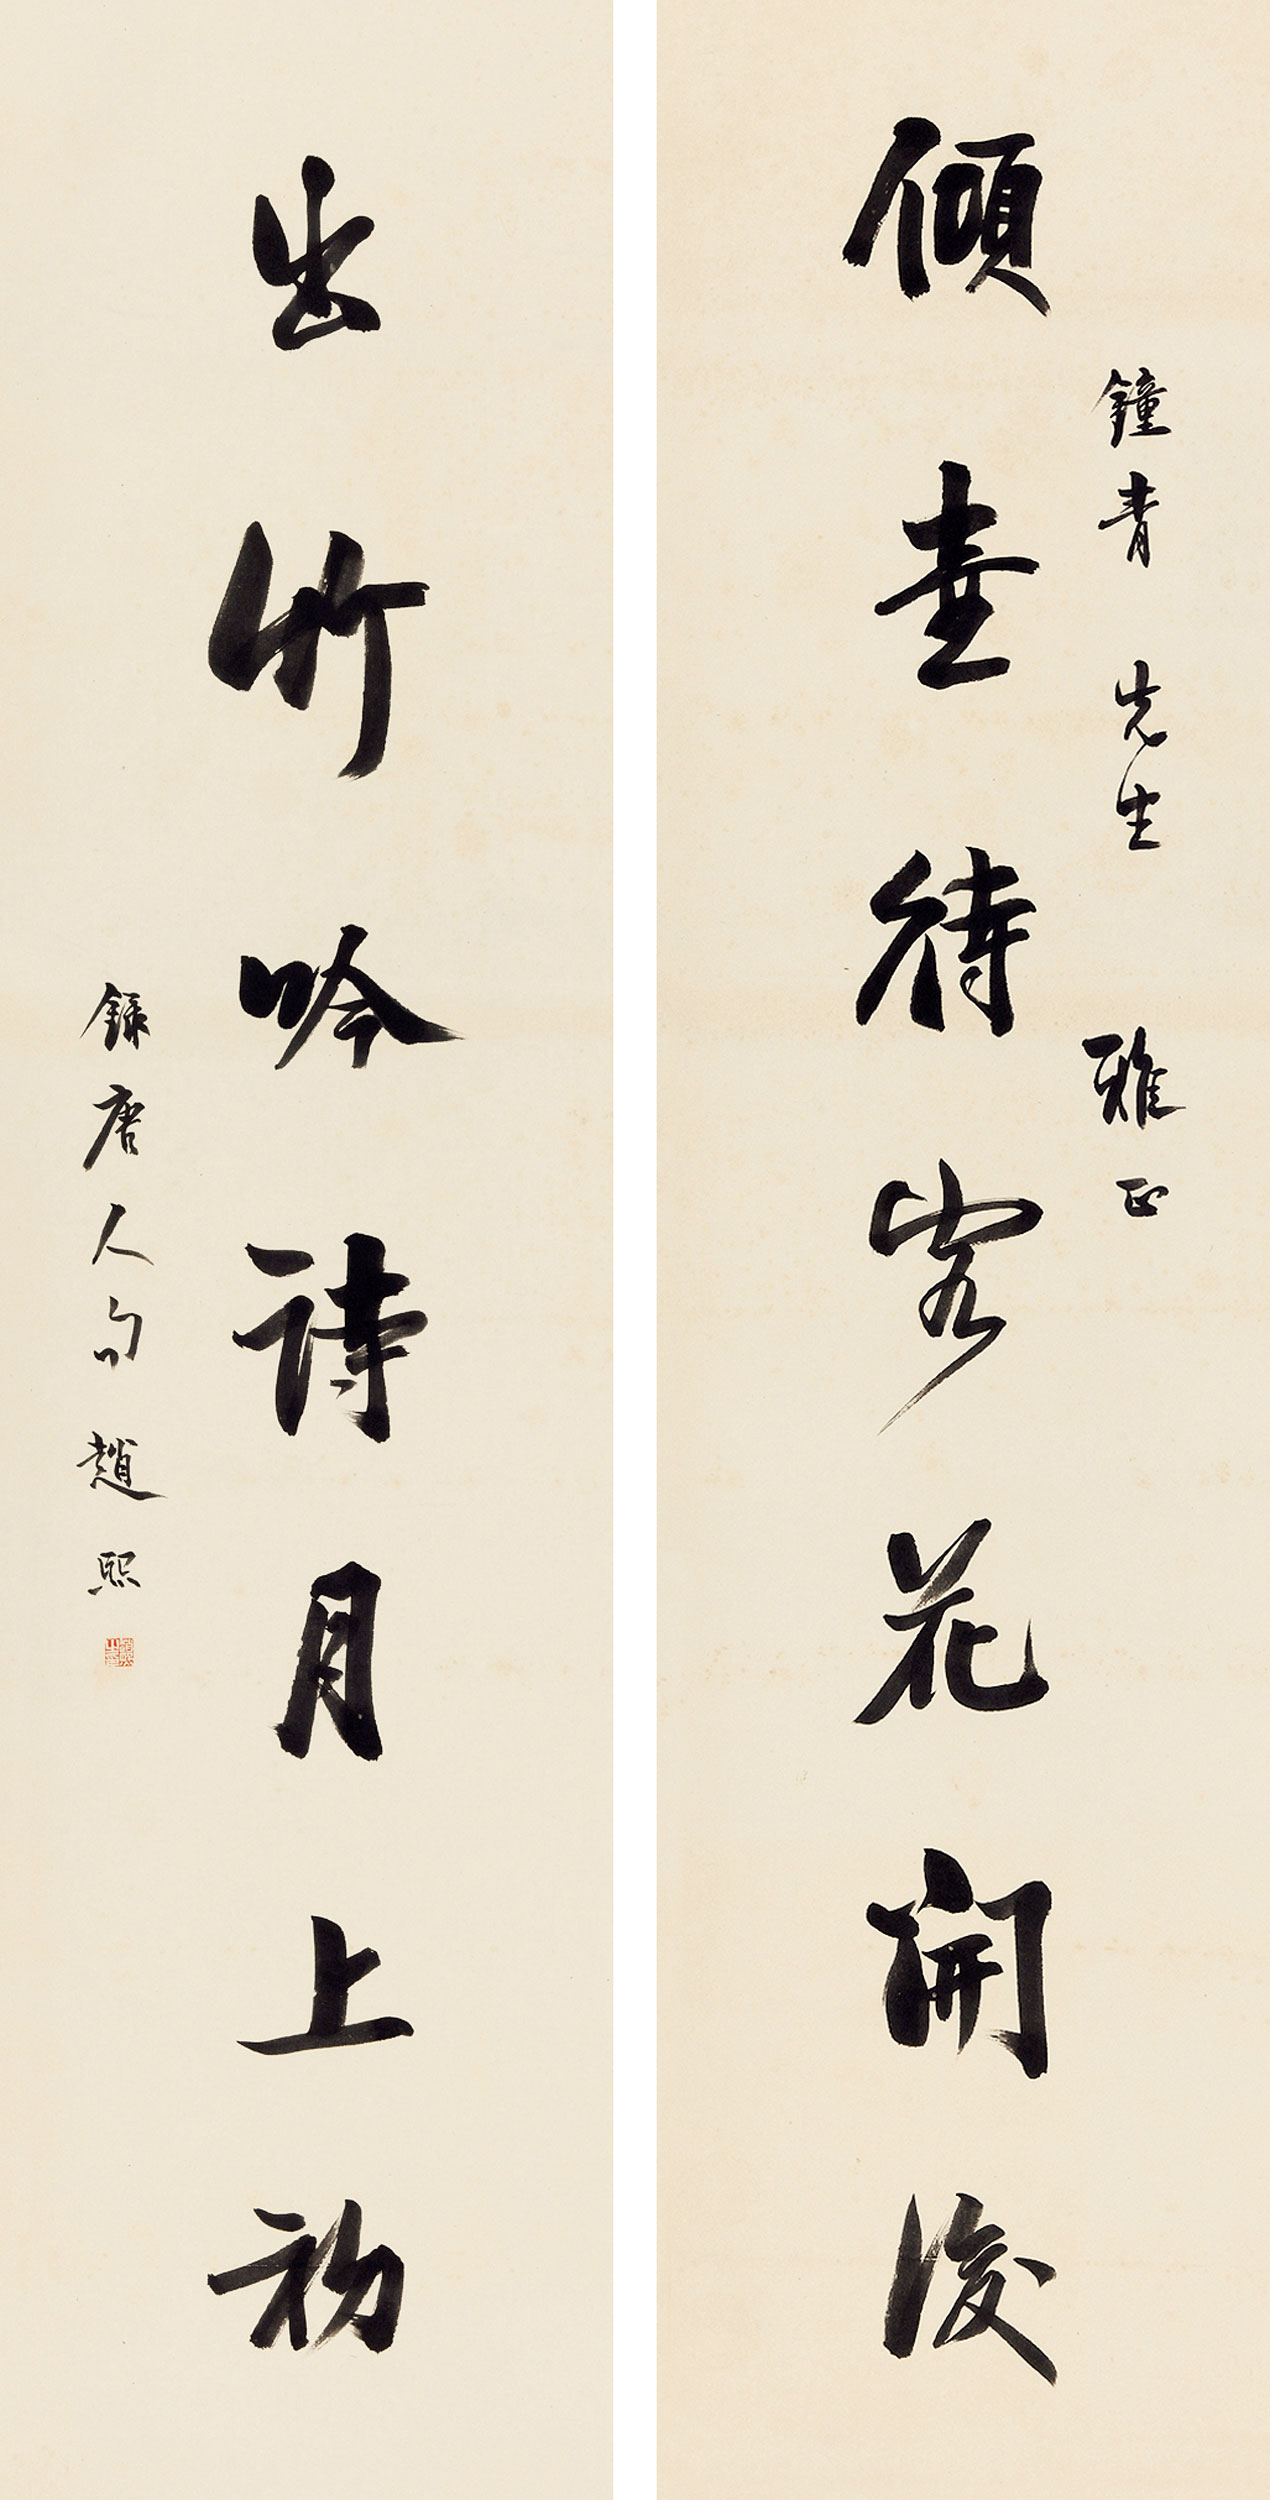 鐘青 先生 雅正
傾壺待客花開後
出竹吟詩月上初
錄唐人句 趙熙